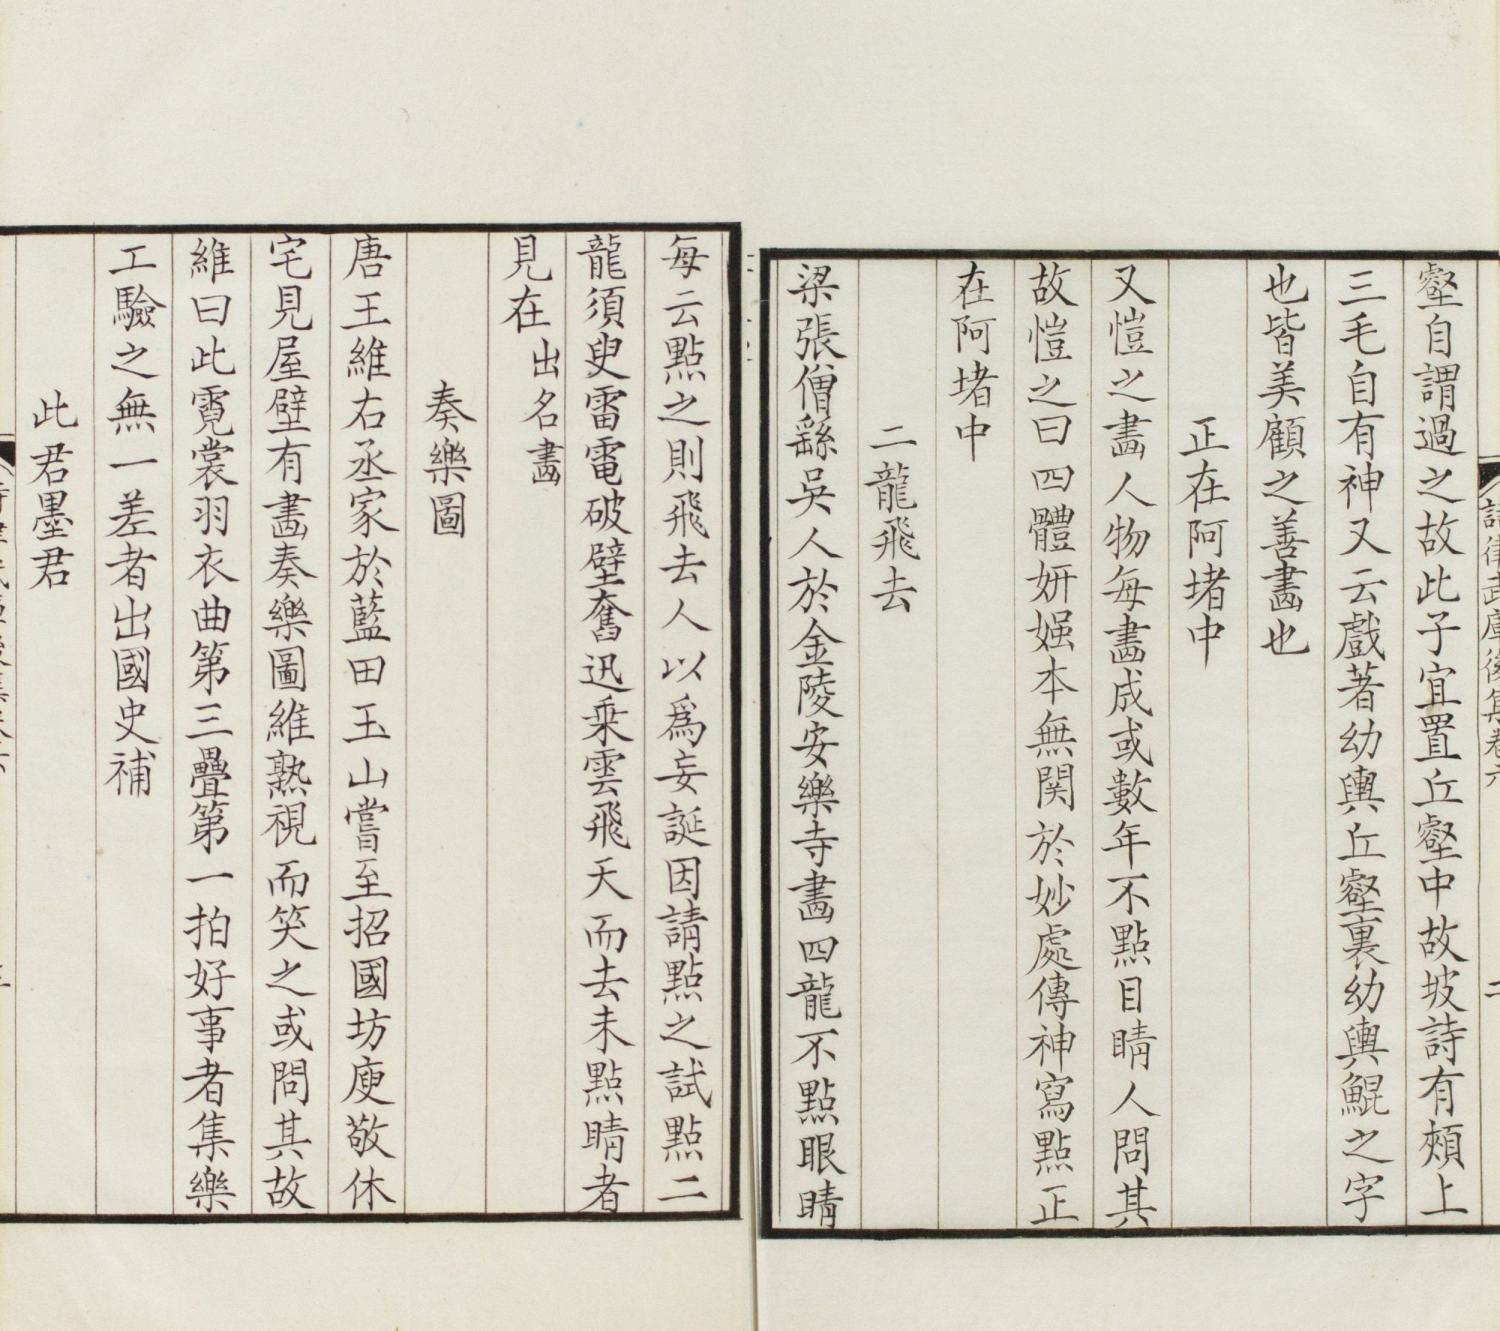 壑自謂過之故此子宜置丘壑中故坡詩有頰上
三毛自有神又云戲著幼輿丘壑裏幼輿鯤之字
也皆美顧之善畵也
正在阿堵中
又愷之畵人物每畵成或數年不點目睛人問其
故愷之曰四體妍媸本無関於妙處傳神寫點正
在阿堵中
二龍飛去
梁張僧繇吳人於金陵安樂寺畵四龍不點眼睛
每云點之則飛去人以爲妄誕因請點之試點二
龍須臾雷電破壁奮迅乘雲飛天而去未點睛者
見在出名畵
奏樂圖
唐王維右丞家於藍田玉山嘗至招國坊庾敬休
宅見屋壁有畵奏樂圖維熟視而笑之或問其故
維曰此霓裳羽衣曲第三疊第一拍好事者集樂
工驗之無一差者出國史補
此君墨君
詩律武庫後集卷六
二